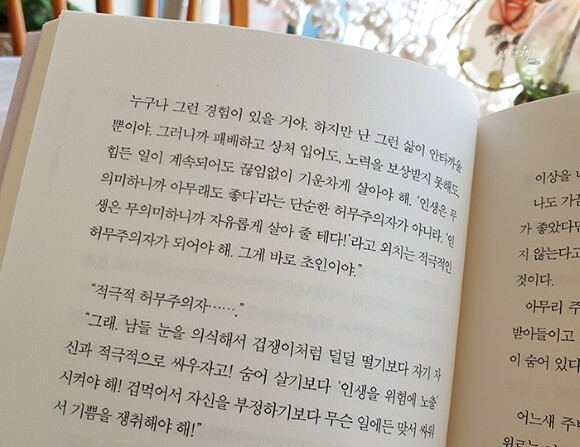 누구나 그런 경험이 있을 거야. 하지만 난 그런 삶이 안타까울
뿐이야. 그러니까 패배하고 상처 입어도, 노력을 보상받지 못해도,
힘든 일이 계속되어도 끊임없이 기운차게 살아야 해. '인생은 무
의미하니까 아무래도 좋다'라는 단순한 허무주의자가 아니라, '인
생은 무의미하니까 자유롭게 살아 줄 테다!'라고 외치는 적극적인
허무주의자가 되어야 해. 그게 바로 초인이야."
"적극적 허무주의자……."
"그래. 남들 눈을 의식해서 겁쟁이처럼 덜덜 떨기보다 자기 자
신과 적극적으로 싸우자고! 숨어 살기보다 '인생을 위험에 노출'
시켜야 해! 겁먹어서 자신을 부정하기보다 무슨 일에든 맞서 싸워
서 기쁨을 쟁취해야 해!"
이상을 
나도 가끔
가 좋았다면
지 않는다고
것이다.
아무리 주
받아들이고
이 숨어 있다
어느새 주변